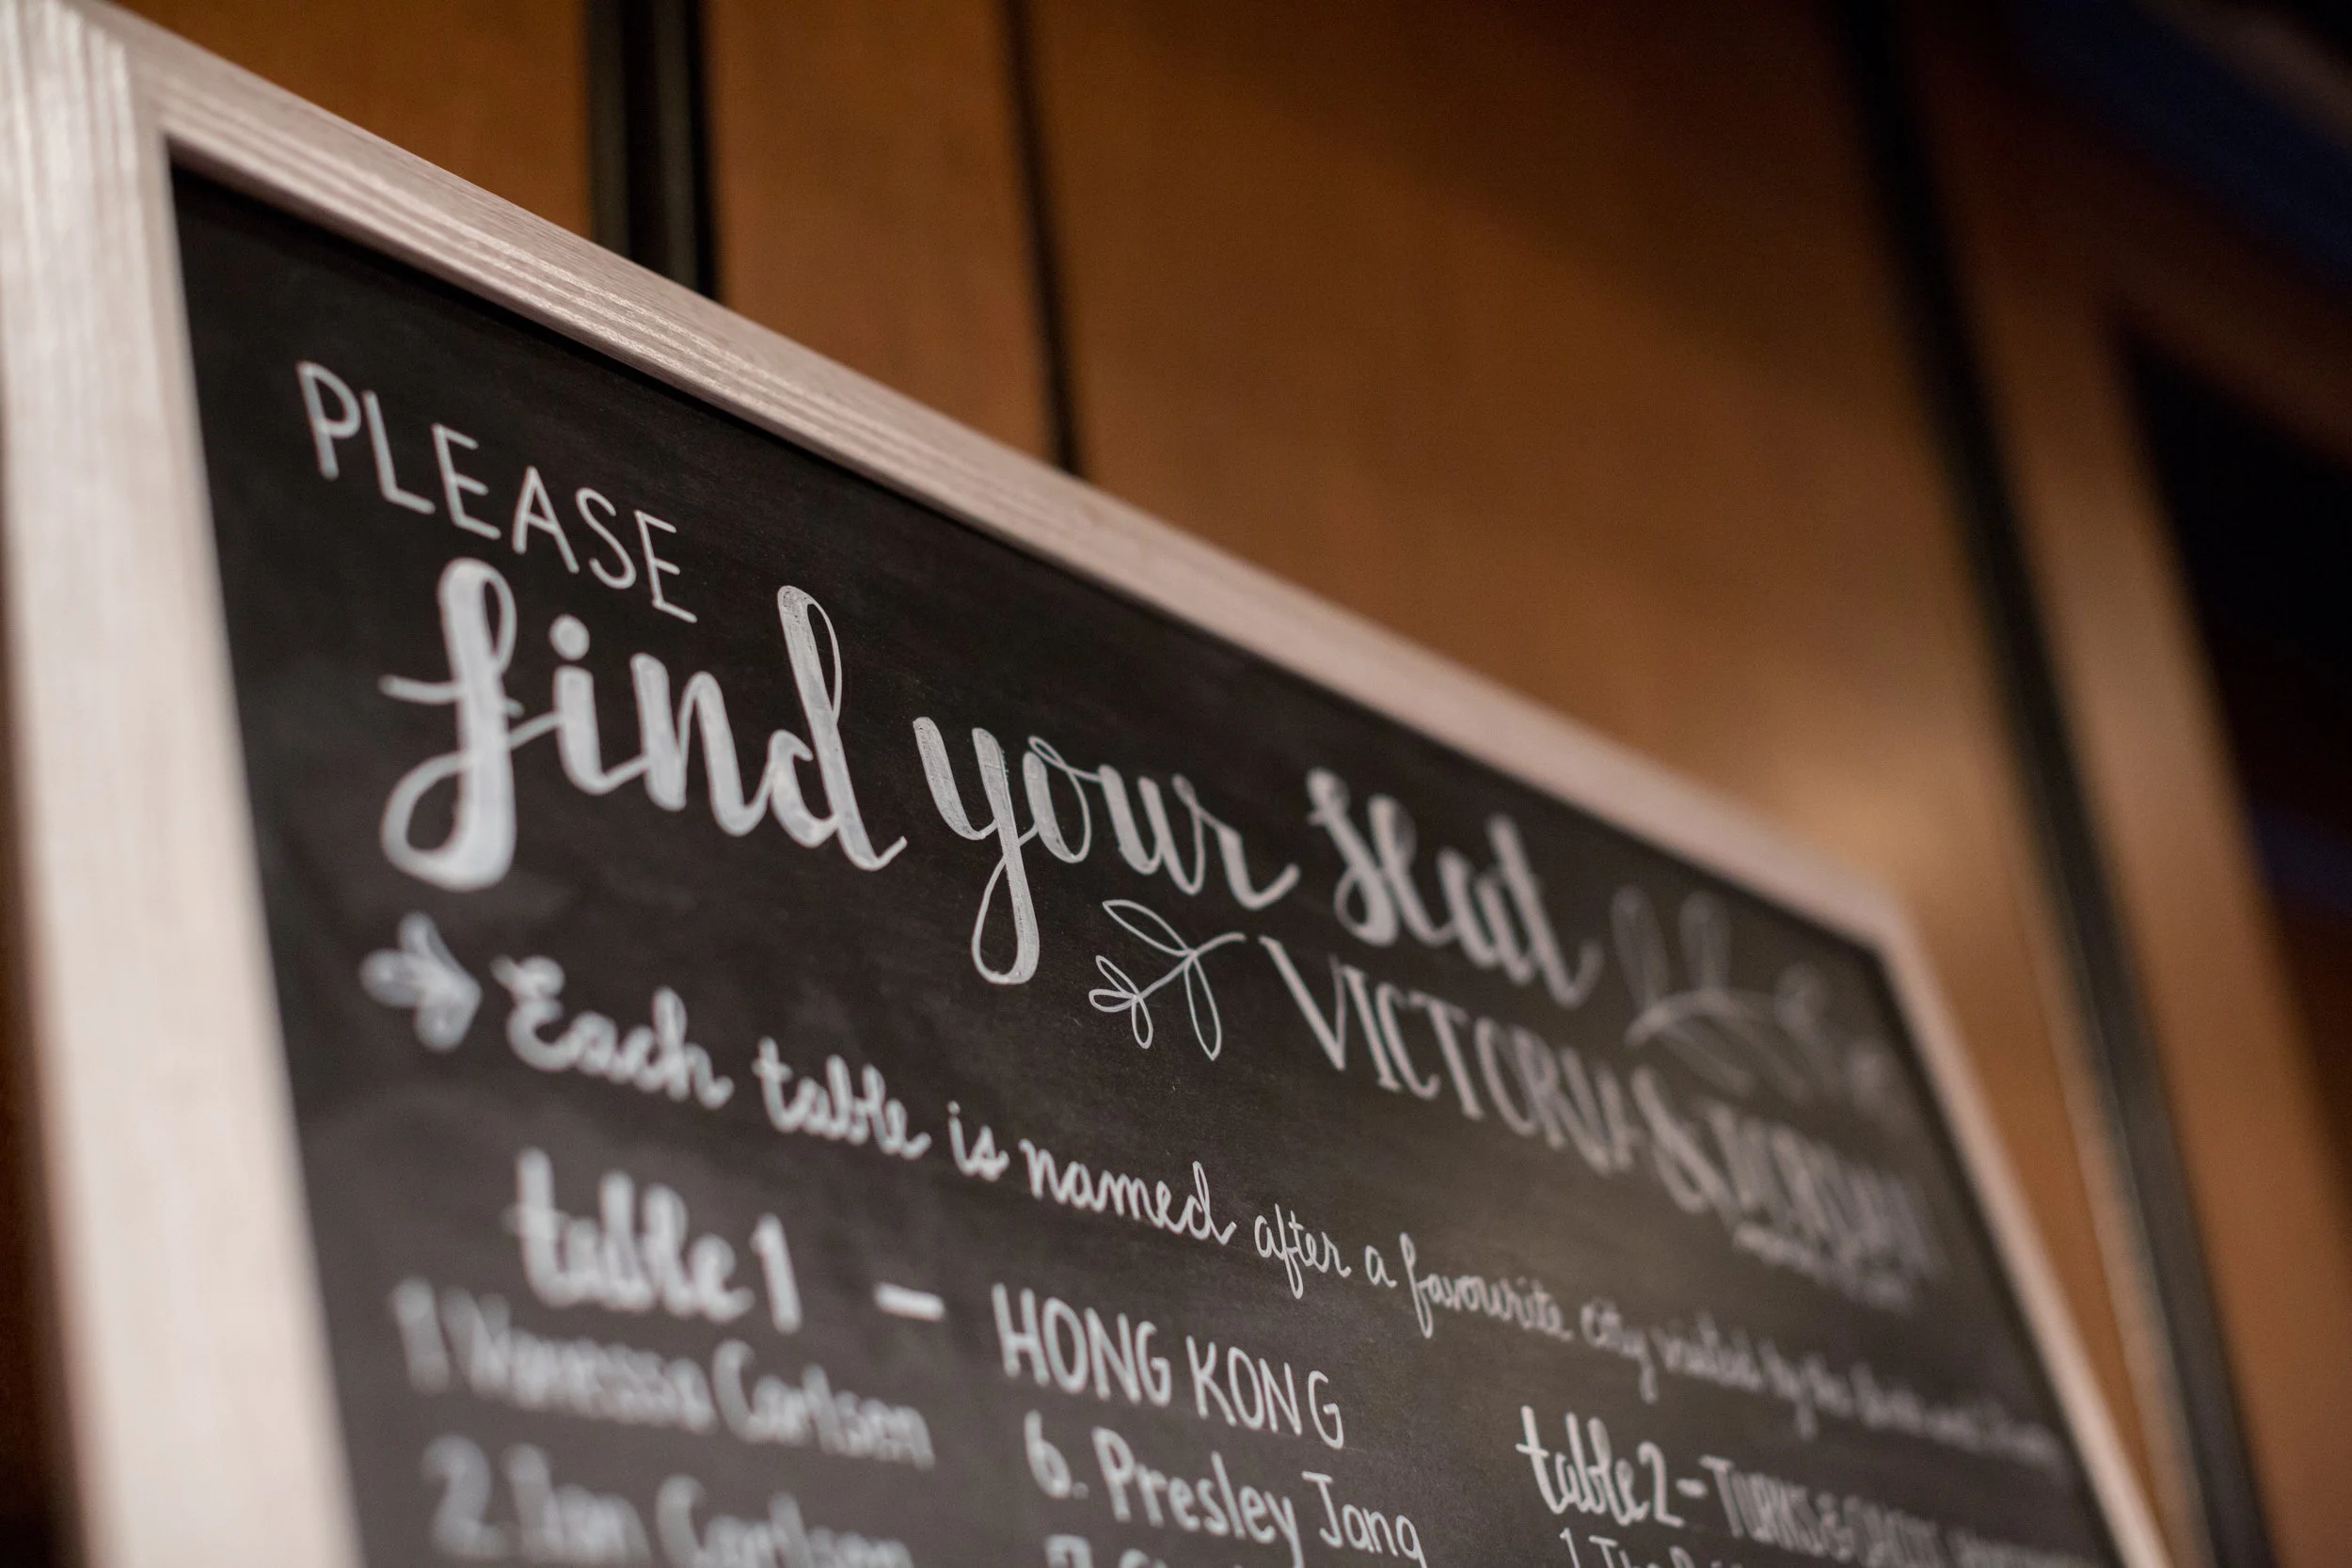 PLEASE
find your seat
VICTORIA & JORDAN
Each table is named after a favourite city visited by the
table 1 – HONG KONG
1 Vanessa Carlsen
2. Ian Carlsen
6. Presley Jang
7.
table 2 - TURKS & CAICOS
1